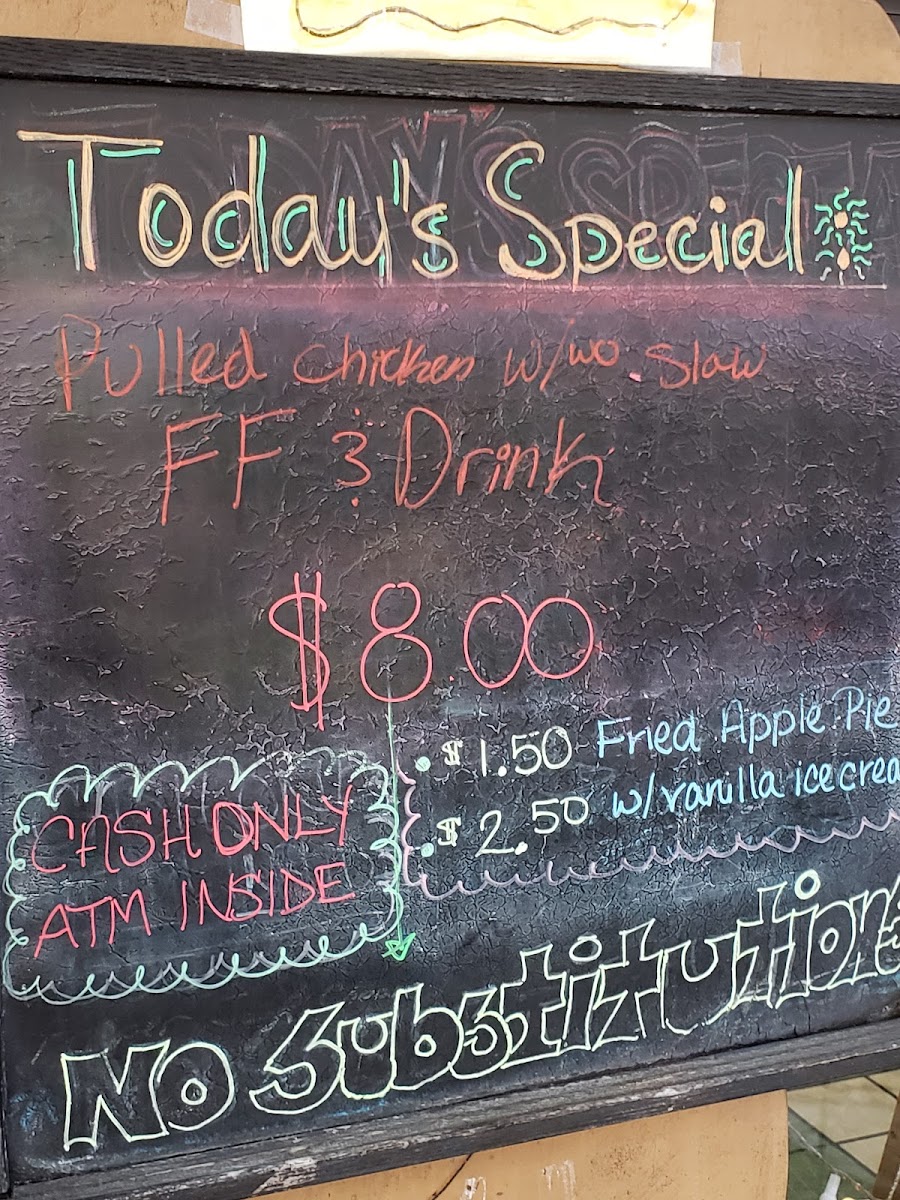 Today's Special
Pulled Chicken w/wo Slaw
FF & Drink
$8.00
• $1.50 Fried Apple Pie
• $2.50 w/vanilla ice crea
CASH ONLY
ATM INSIDE
NO Substitutions